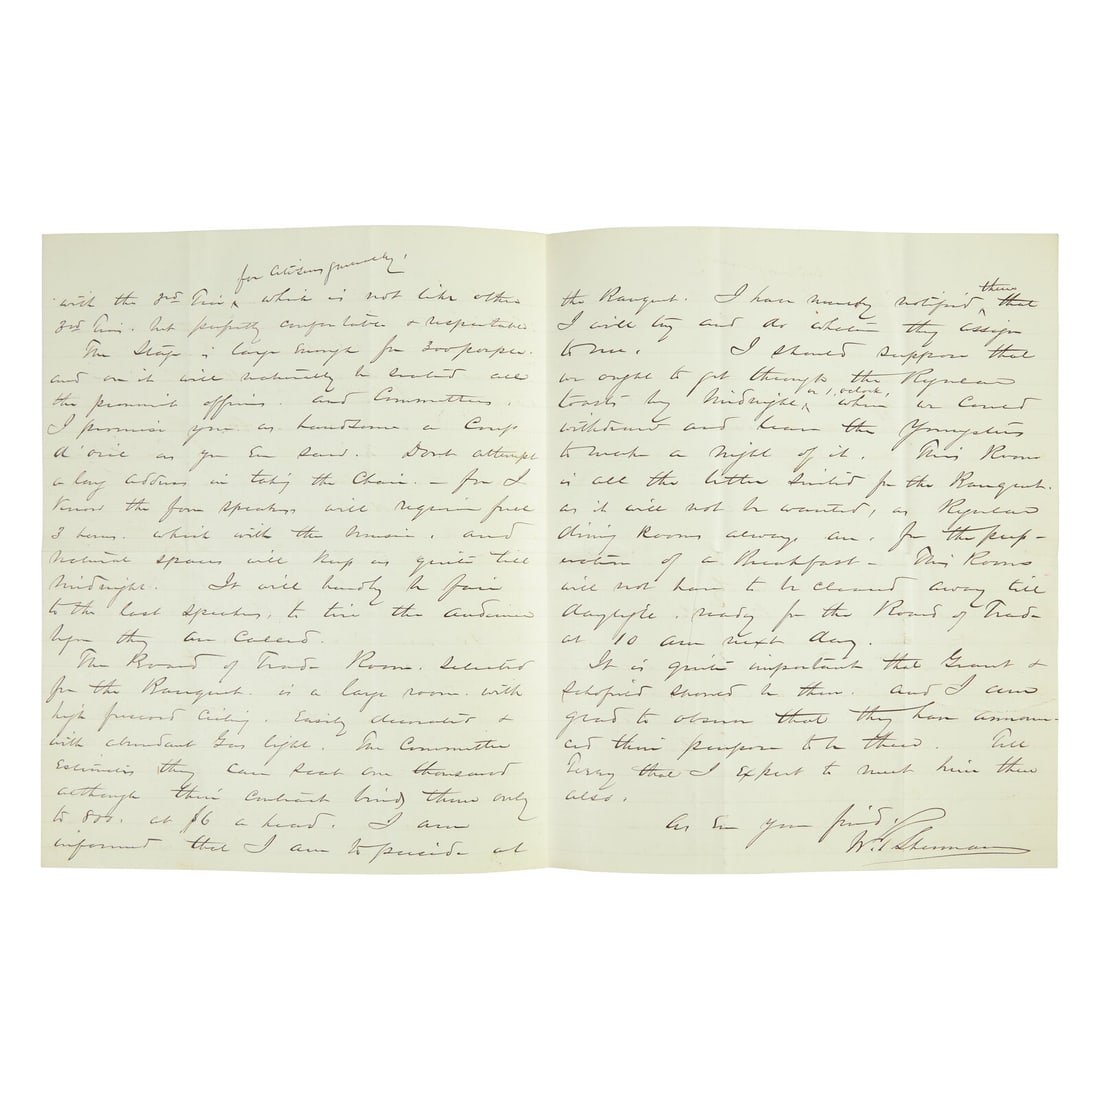 for Citizens generally,
with the 3rd Tier which is not like other
3rd Tiers. but perfectly comfortable & respectable.
The Stage is large enough for 300 people.
and on it will naturally be seated all
the prominent officers. and Committees.
I promise you as handsome a Coup
d'oeil as you Ever saw. Dont attempt
a long address in taking the Chair. — for I
Know the four speakers will require full
3 hours. which with the music, and
natural spaces will keep us quite till
midnight. It will hardly be fair
to the last speakers, to tire the audience
before they are called.
The Board of Trade Room. selected
for the Banquet. is a large room. with
high frescoed Ceiling. Easily decorated &
with abundant Gas light. The Committee
Estimates they can seat one thousand
although their contract binds them only
to 800. at $6 a head. I am
informed that I am to preside at
the Banquet. I have merely notified them that
I will try and do whatever they assign
to me. I should suppose that
we ought to get through the Regular
toasts by Midnight, or 1, oclock, when we could
withdraw and leave the Youngsters
to make a night of it. This Room
is all the better suited for the Banquet.
as it will not be wanted, as Regular
dining Rooms always are, for the prep-
aration of a Breakfast — This Room
will not have to be cleared away till
daylight. ready for the Board of Trade
at 10 am next day.
It is quite important that Grant &
Schofield should be there. and I am
glad to observe that they have announ-
ced their purpose to be there. Tell
that I expect to meet him there
also.
As Ever your friend,
W. T. Sherman